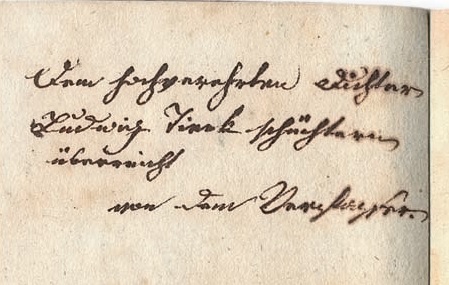 Dem hochverehrten Dichter
Ludwig Tieck schüchtern
überreicht
von dem Verfasser.